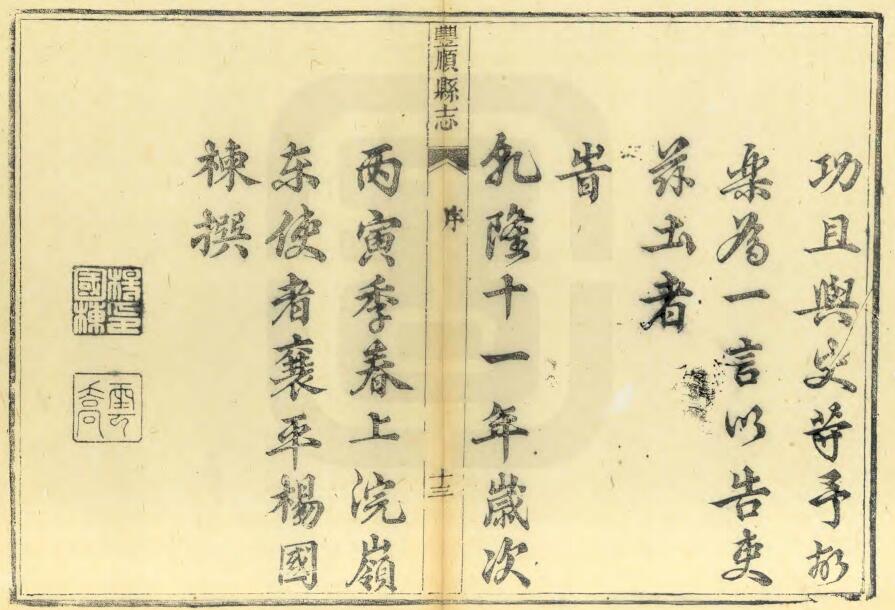 功且與史等予故
樂為一言以告吏
茲土者
旹
乹隆十一年歲次
豐順縣志
序
十三
丙寅季春上浣嶺
東使者襄平楊國
棟撰
楊印國棟
雲喬